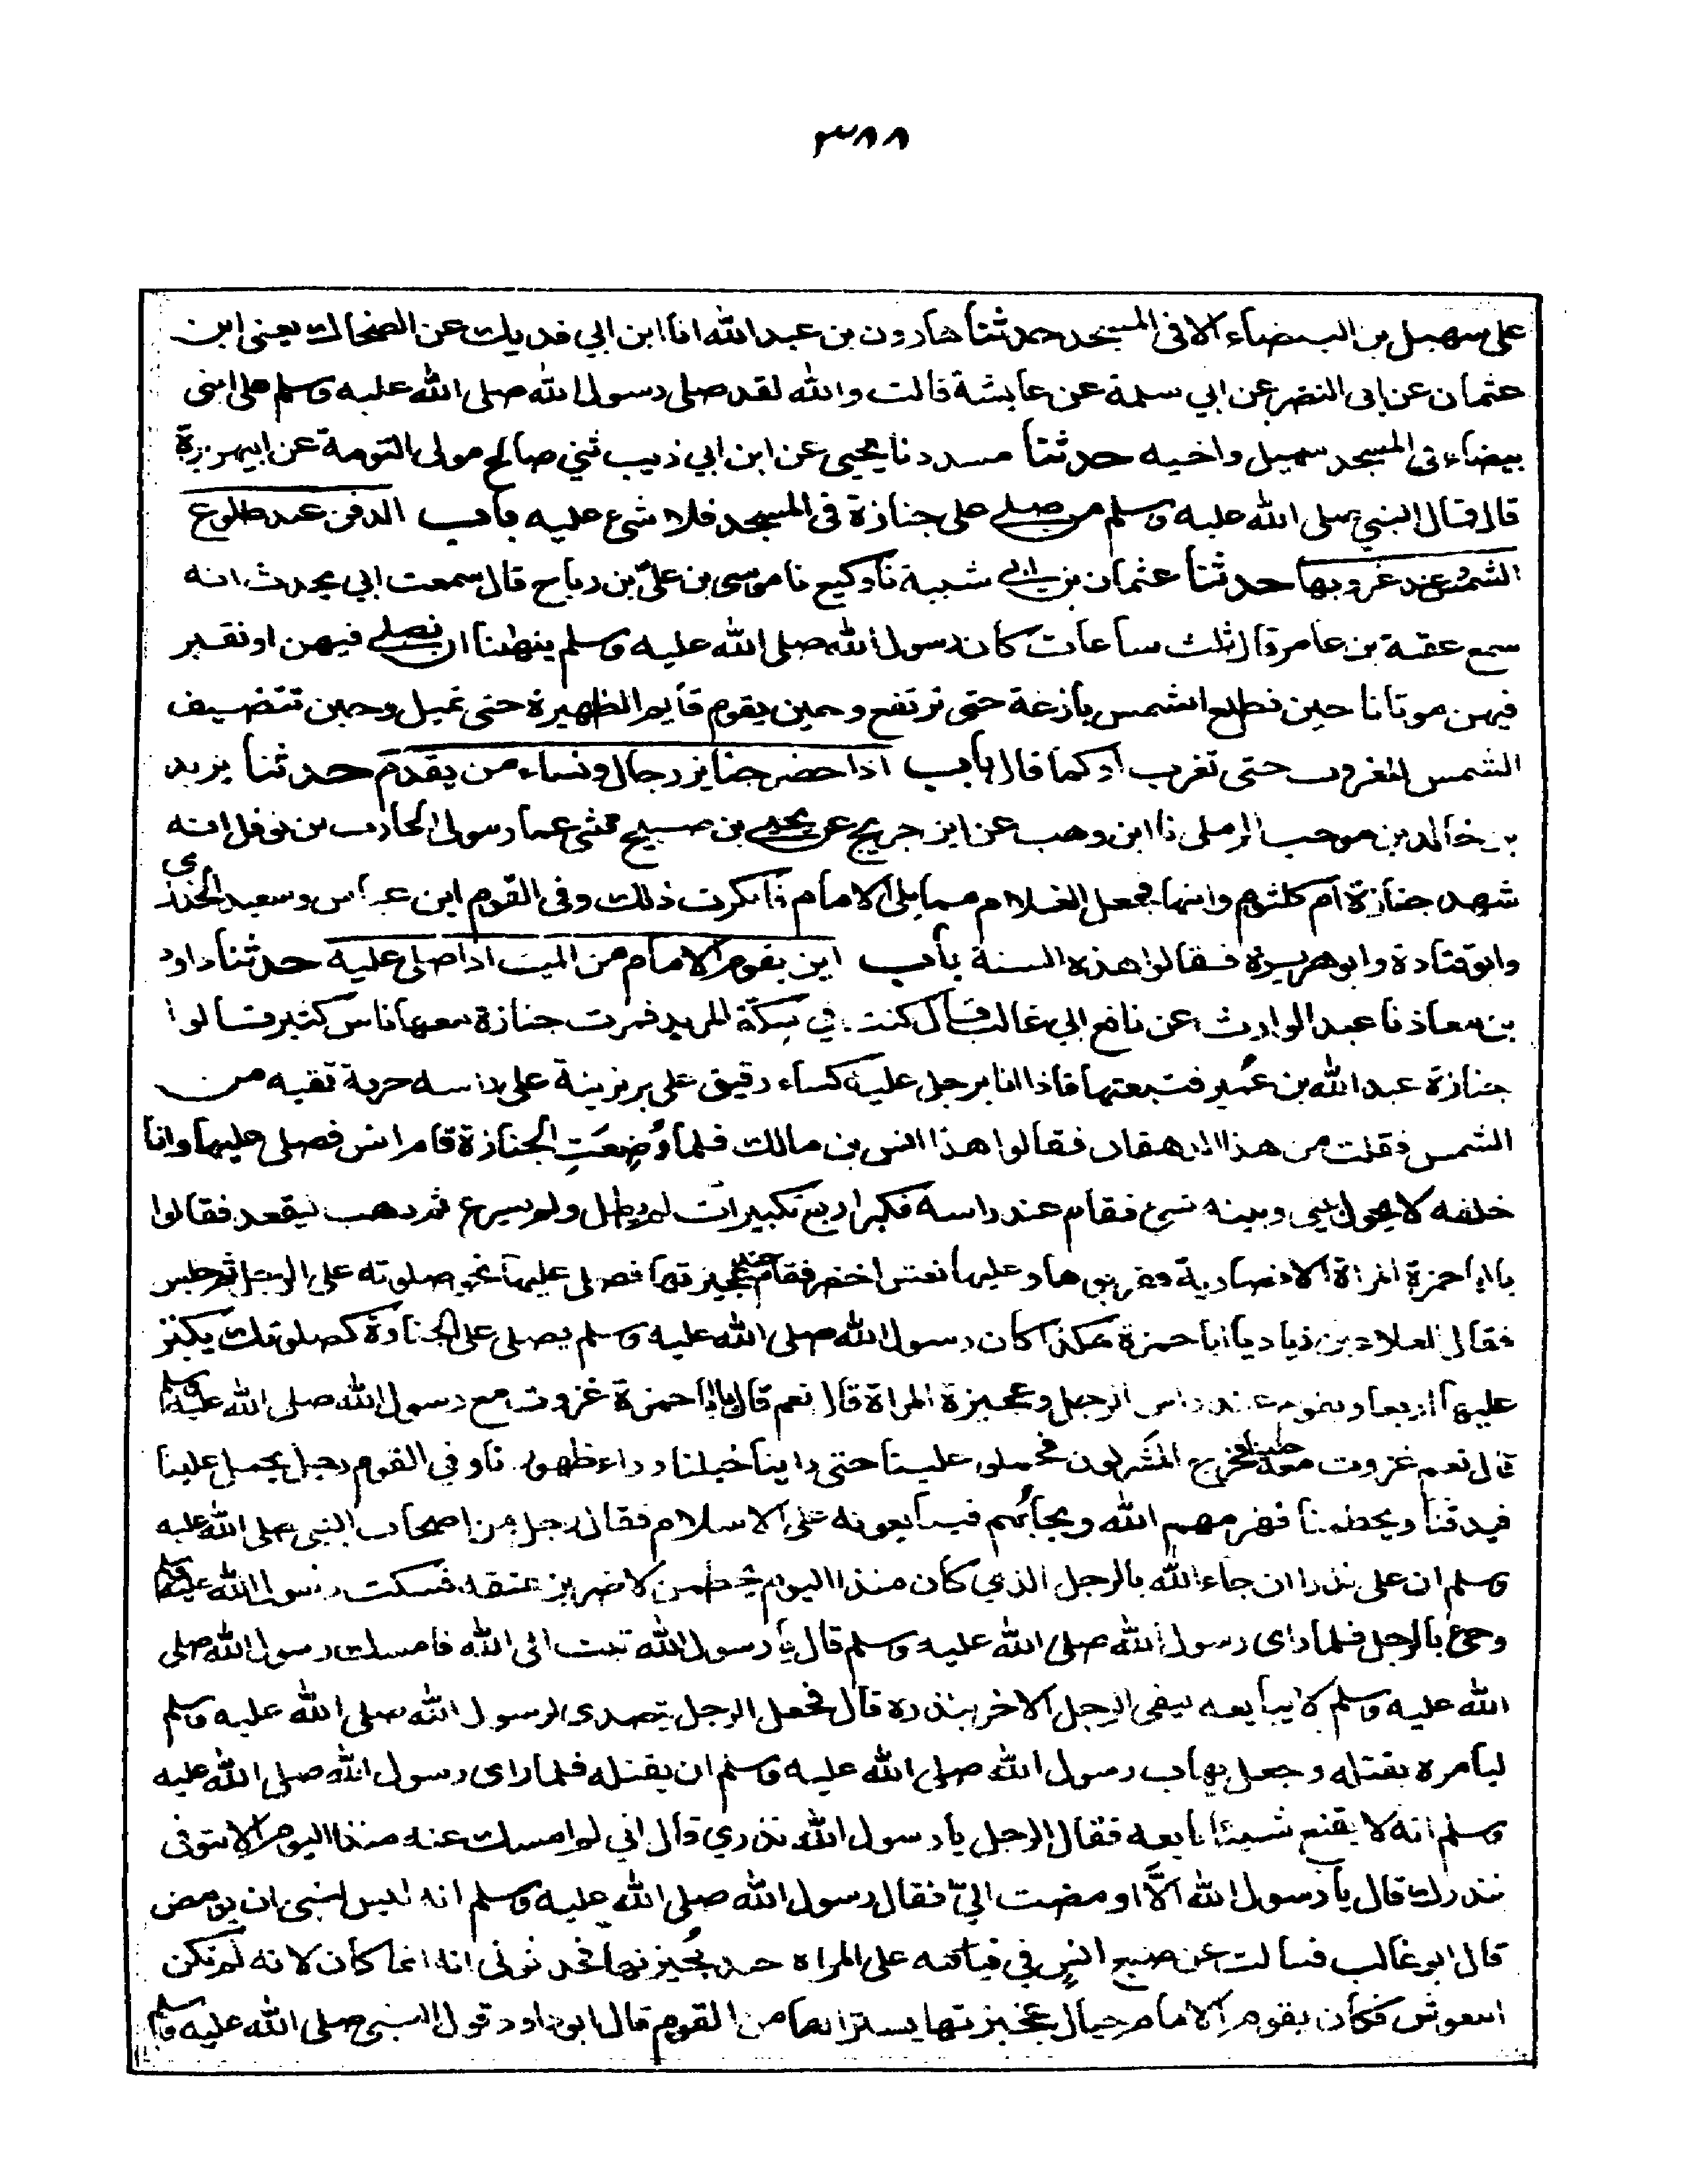 ٣٨٨
على سهيل بن البيضاء الا فى المسجد حدثنا هارون بن عبد الله انا ابن ابي فديك عن الضحاك يعنى ابن
عثمان عن ابى النضر عن ابي سلمة عن عايشة قالت والله لقد صلى رسول الله صلى الله عليه وسلم على ابنى
بيضاء فى المسجد سهيل واخيه حدثنا مسدد نا يحيى عن ابن ابي ذيب ثني صالح مولى التومة عن ابي هريرة
قال قال النبي صلى الله عليه وسلم من صلى على جنازة فى المسجد فلا شئ عليه باب الدفن عند طلوع
الشمس وعند غروبها حدثنا عثمان بن ابى شيبة نا وكيع نا موسى بن علىّ بن رباح قال سمعت ابي يحدث انه
سمع عقبة بن عامر قال ثلث ساعات كان رسول الله صلى الله عليه وسلم ينهانا ان نصلى فيهن او نقبر
فيهن موتانا حين تطلع الشمس بازغة حتى ترتفع وحين يقوم قايم الظهيرة حتى تميل وحين تتضيف
الشمس للغروب حتى تغرب او كما قال باب اذا حضر جنايز رجال ونساء من يقدم حدثنا يزيد
بن خالد بن موهب الرملى نا ابن وهب عن ابن جريج عن يحيى بن صبيح حدثنى عمار مولى الحارث بن نوفل انه
شهد جنازة ام كلثوم وابنها فجعل الغلام مما يلى الامام فانكرت ذلك وفى القوم ابن عباس وسعيد الخدرى
وابو قتادة وابو هريرة فقالوا هذه السنة باب اين يقوم الامام من الميت اذا صلى عليه حدثنا داود
بن معاذ نا عبد الوارث عن نافع ابى غالب قال كنت في سِكّة المربد فمرت جنازة معها ناس كثير قالوا
جنازة عبد الله بن عُمير فتبعتها فاذا انا برجل عليه كساء رقيق على بريزينة على راسه خرقة تقيه من
الشمس فقلت من هذا الدهقان فقالوا هذا انس بن مالك فلما وُضِعَتِ الجنازة قام انس فصلى عليها وانا
خلفه لا يحول بينى وبينه شئ فقام عند راسه فكبر اربع تكبيرات لم يطل ولم يسرع ثم ذهب ليقعد فقالوا
يا ابا حمزة المراة الانصارية فقربوها وعليها نعش اخضر فقام عند عجيزتها فصلى عليها نحو صلوته على الرجل ثم جلس
فقال العلاء بن زياد يا ابا حمزة هكذا كان رسول الله صلى الله عليه وسلم يصلى على الجنازة كصلوتك يكبر
عليها اربعا ويقوم عند راس الرجل وعجيزة المراة قال نعم قال يا ابا حمزة غزوت مع رسول الله صلى الله عليه وسلم
قال نعم غزوت معه حنينا فخرج المشركون فحملوا علينا حتى راينا خيلنا وراء ظهورنا وفي القوم رجل يحمل علينا
فيدقنا ويحطمنا فهزمهم الله ويجابُهم فيبايعونه على الاسلام فقال رجل من اصحاب النبي صلى الله عليه
وسلم ان على نذرا ان جاء الله بالرجل الذي كان منذ اليوم يحطمنا لاضربن عنقه فسكت رسول الله عليه وسلم
وجئ بالرجل فلما راى رسول الله صلى الله عليه وسلم قال يا رسول الله تبت الى الله فامسك رسول الله صلى
الله عليه وسلم لا يبايعه ليفى الرجل الاخر بنذره قال فجعل الرجل يتصدى لرسول الله صلى الله عليه وسلم
ليامره بقتله وجعل يهاب رسول الله صلى الله عليه وسلم ان يقتله فلما راى رسول الله صلى الله عليه
وسلم انه لا يقنع شيئا بايعه فقال الرجل يا رسول الله نذري قال اني لم امسك عنه منذ اليوم الا لتوفى
نذرك قال يا رسول الله الّا اومضت اليّ فقال رسول الله صلى الله عليه وسلم انه ليس لنبى ان يومض
قال ابو غالب فسالت عن صنيع انس في قيامه على المراه عند عجيزتها فحدثونى انه انما كان لانه لم تكن
النعوش فكان يقوم الامام حيال عجيزتها يسترها من القوم قال ابو داود قول النبي صلى الله عليه وسلم